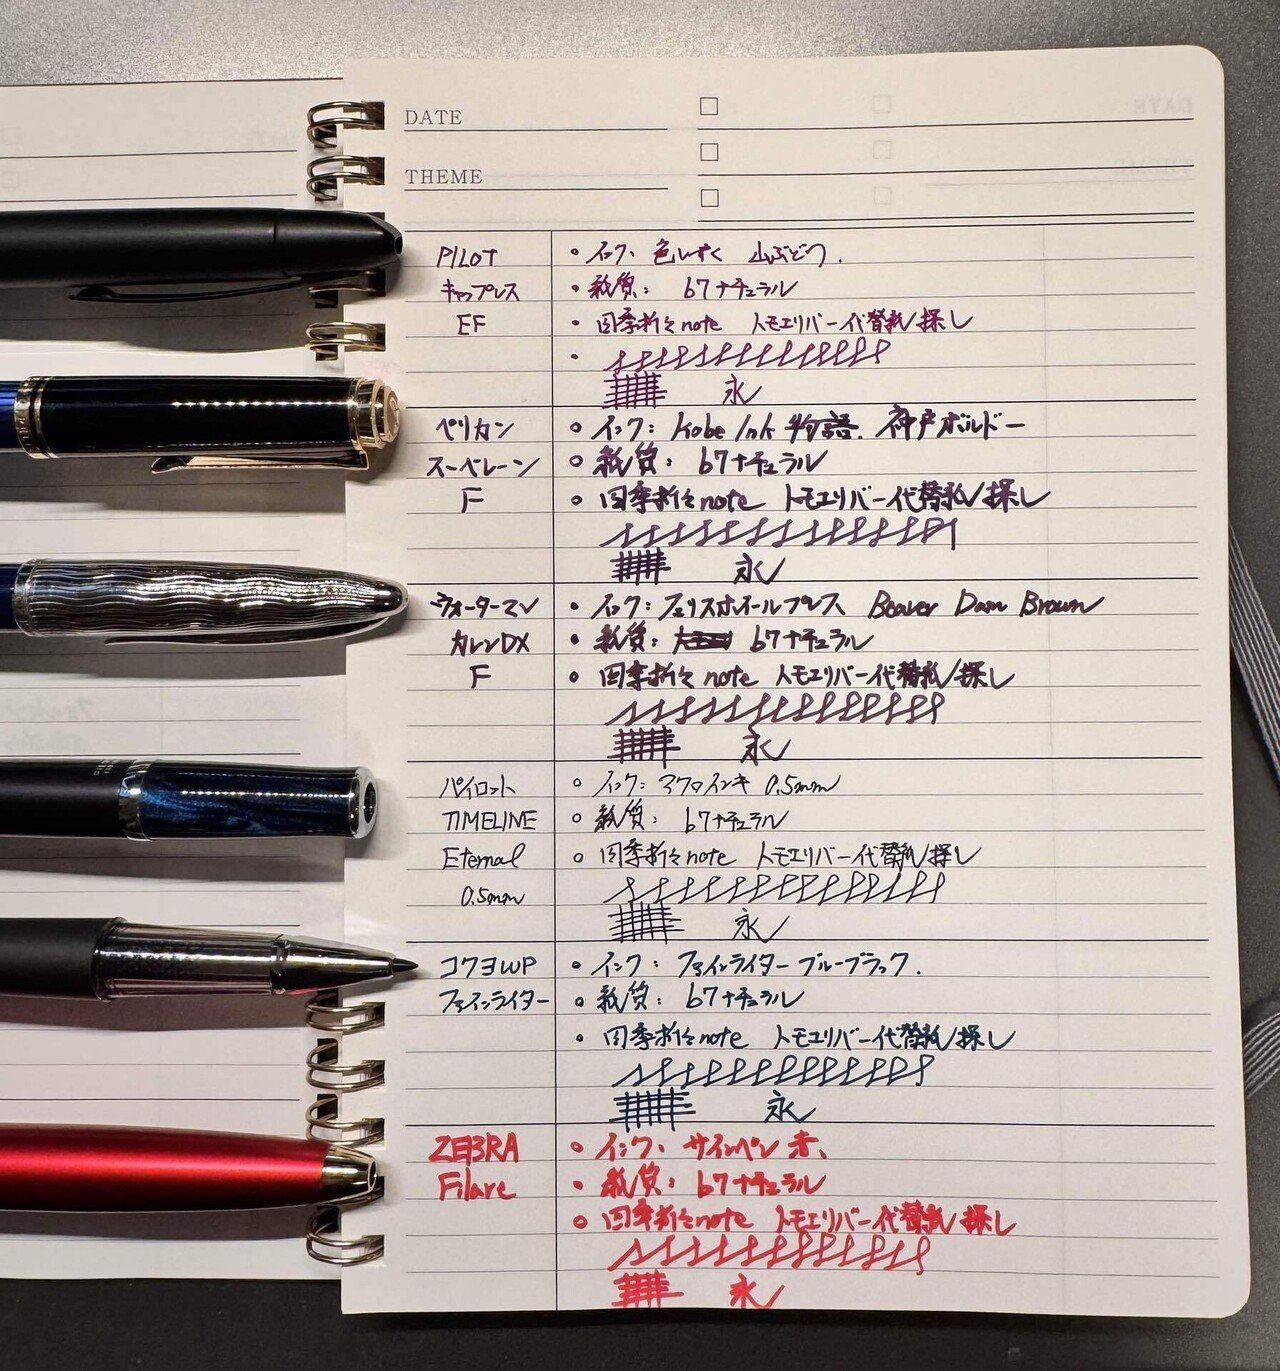 DATE
THEME
PILOT ・インク: 色しずく 山ぶどう.
キャップレス ・紙質: b7ナチュラル
EF ・四季折々note トモエリバー代替紙探し
永
ペリカン ・インク: Kobe Ink 物語. 神戸ボルドー
スーベレーン ・紙質: b7ナチュラル
F ・四季折々note トモエリバー代替紙探し
永
ウォーターマン ・インク: フェリスホイールプレス Beaver Dam Brown
カレンDX ・紙質: b7ナチュラル
F ・四季折々note トモエリバー代替紙探し
永
パイロット ・インク: マクロインキ 0.5mm
TIMELINE ・紙質: b7ナチュラル
Eternal ・四季折々note トモエリバー代替紙探し
0.5mm
永
コクヨWP ・インク: ファインライター ブルーブラック.
ファインライター ・紙質: b7ナチュラル
・四季折々note トモエリバー代替紙探し
永
ZEBRA ・インク: サインペン 赤、
Filare ・紙質: b7ナチュラル
・四季折々note トモエリバー代替紙探し
永